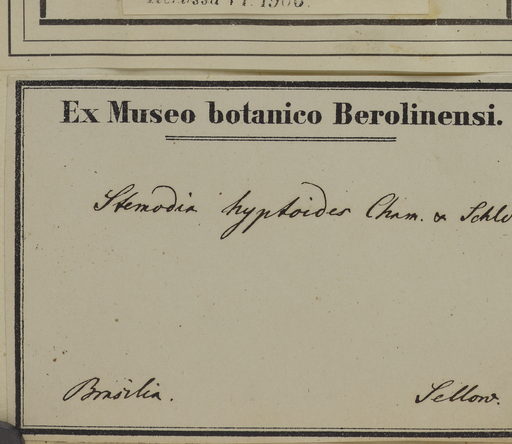 1906.
Ex Museo botanico Berolinensi.
Stemodia hyptoides Cham. & Schl
Brasilia. Sellow.